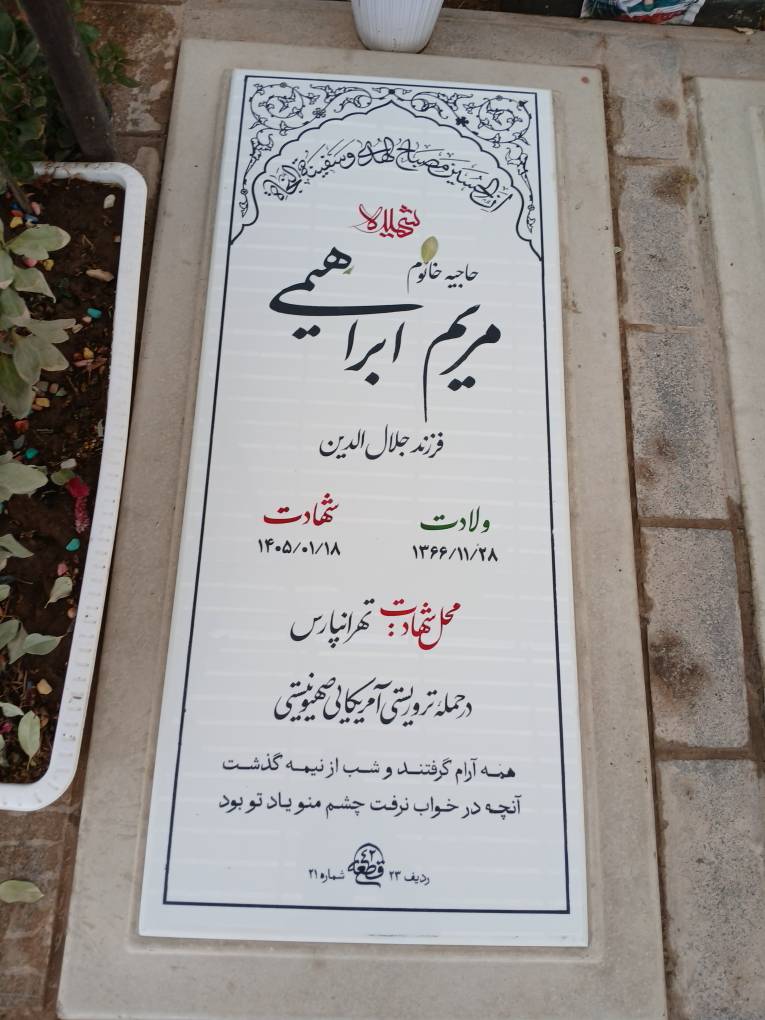 ان الحسین مصباح الهدی و سفینة النجاة
شهیده
حاجیه خانوم
مریم ابراهیمی
فرزند جلال الدین
ولادت شهادت
۱۳۶۶/۱۱/۲۸ ۱۴۰۵/۰۱/۱۸
محل شهادت: تهرانپارس
در حملهٔ تروریستی آمریکایی صهیونیستی
همه آرام گرفتند و شب از نیمه گذشت
آنچه در خواب نرفت چشم منو یاد تو بود
ردیف ۲۳ قطعه ۴۲ شماره ۲۱